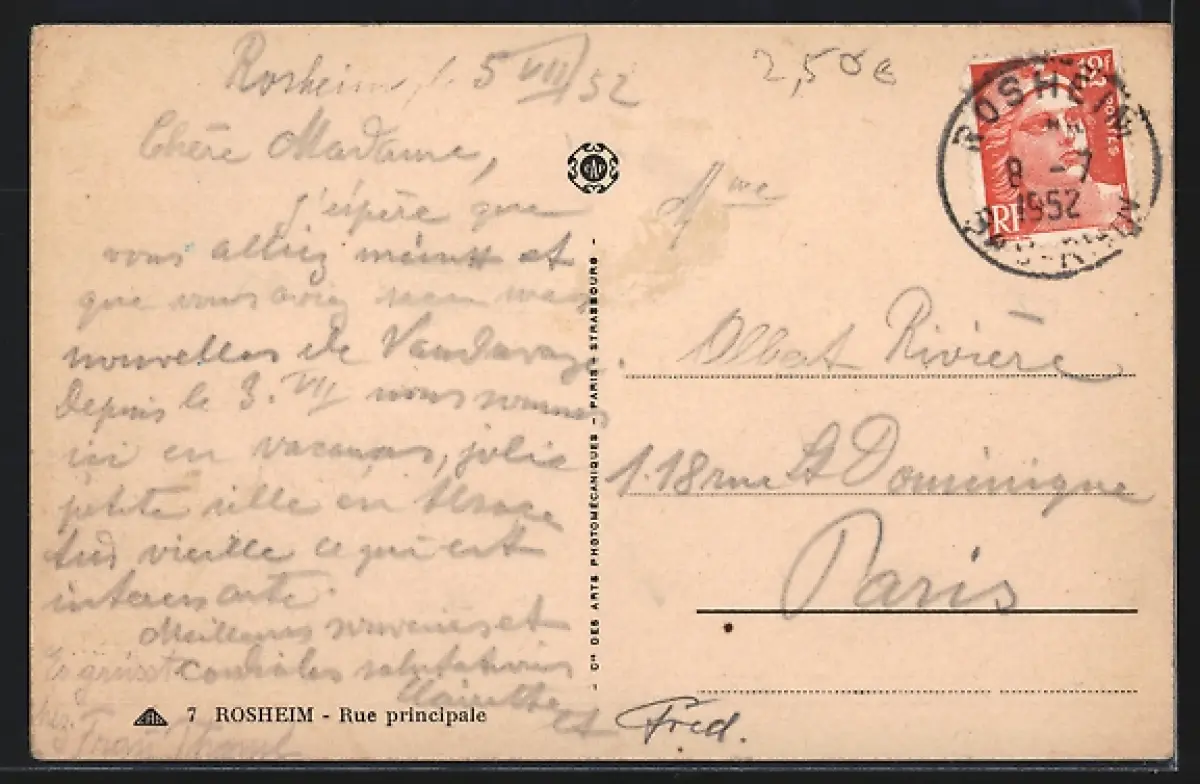 Rosheim, le 5 VII 52
Chère Madame,
J'espère que
vous alliez mieux et
que vous aviez
nouvelles de
Depuis le 3. VII nous sommes
ici en vacances, jolie
petite ville en Alsace
très vieille ce qui est
interessante.
Meilleurs souvenirs et
cordiales salutations
et Fred.
Es grüsst
Frau
7 ROSHEIM - Rue principale
CAP
Cie DES ARTS PHOTOMÉCANIQUES - PARIS - STRASBOURG -
2,50€
12f
POSTES
RF
ROSHEIM
8 -7
1952
BAS-RHIN
Mme
Albert Rivière
118 rue St Dominique
Paris